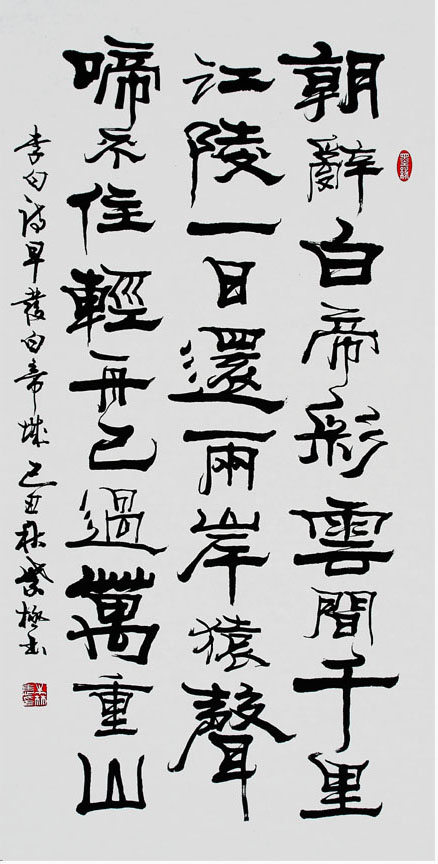 朝辭白帝彩雲間千里
江陵一日還兩岸猿聲
啼不住輕舟已過萬重山
李白诗早發白帝城己丑秋紫極书